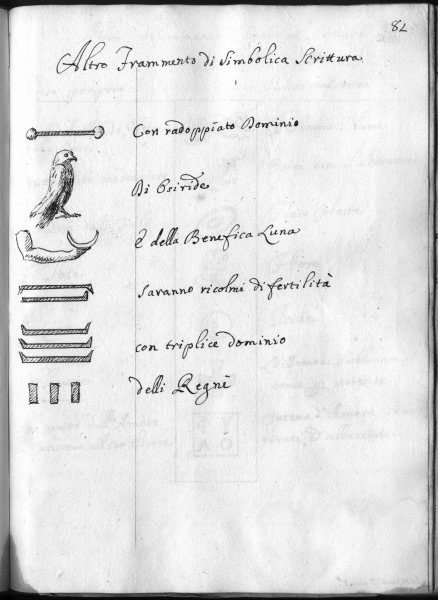 82
Altro Frammento di Simbolica Scrittura
Con radoppiato Dominio
Di Osiride
È della Benefica Luna
Saranno ricolmi di fertilità
con triplice dominio
delli Regni